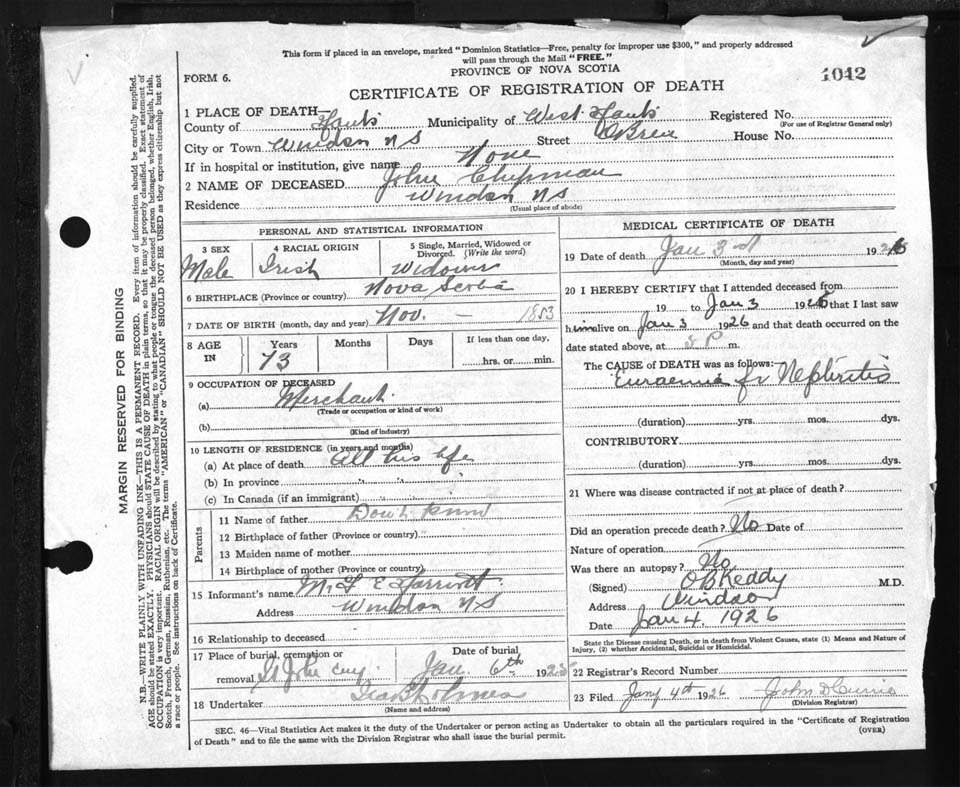 This form if placed in an envelope, marked "Dominion Statistics—Free, penalty for improper use $300," and properly addressed
will pass through the Mail "FREE."
FORM 6.
PROVINCE OF NOVA SCOTIA
1042
CERTIFICATE OF REGISTRATION OF DEATH
1 PLACE OF DEATH—
County of Hants Municipality of West Hants Registered No.
(For use of Registrar General only)
City or Town Windsor NS Street O'Brien House No.
If in hospital or institution, give name None
2 NAME OF DECEASED John Chapman
Residence Windsor NS
(Usual place of abode)
PERSONAL AND STATISTICAL INFORMATION
3 SEX 4 RACIAL ORIGIN 5 Single, Married, Widowed or
Divorced. (Write the word)
Male Irish Widower
6 BIRTHPLACE (Province or country) Nova Scotia
7 DATE OF BIRTH (month, day and year) Nov. — 1853
8 AGE IN Years Months Days If less than one day,
73 hrs. or min.
9 OCCUPATION OF DECEASED
(a) Merchant
(Trade or occupation or kind of work)
(b)
(Kind of industry)
10 LENGTH OF RESIDENCE (in years and months)
(a) At place of death All his life
(b) In province " " "
(c) In Canada (if an immigrant)
Parents
11 Name of father Don't know
12 Birthplace of father (Province or country)
13 Maiden name of mother
14 Birthplace of mother (Province or country)
15 Informant's name
Address Windsor NS
16 Relationship to deceased
17 Place of burial, cremation or Date of burial
removal St John Cmy. Jan. 6th 192
18 Undertaker
(Name and address)
MEDICAL CERTIFICATE OF DEATH
19 Date of death Jan 3rd 192
(Month, day and year)
20 I HEREBY CERTIFY that I attended deceased from
19 to Jan 3 1926 that I last saw
him alive on Jan 3 1926 and that death occurred on the
date stated above, at P m.
The CAUSE OF DEATH was as follows:
Nephritis
(duration) yrs. mos. dys.
CONTRIBUTORY
(duration) yrs. mos. dys.
21 Where was disease contracted if not at place of death?
Did an operation precede death? No Date of
Nature of operation
Was there an autopsy? No
(Signed) O B Keddy M.D.
Address Windsor
Date Jan 4. 1926
State the Disease causing Death, or in death from Violent Causes, state (1) Means and Nature of
Injury, (2) whether Accidental, Suicidal or Homicidal.
22 Registrar's Record Number
23 Filed Jany 4th 1926 John D Currie
(Division Registrar)
SEC. 46—Vital Statistics Act makes it the duty of the Undertaker or person acting as Undertaker to obtain all the particulars required in the "Certificate of Registration
of Death" and to file the same with the Division Registrar who shall issue the burial permit.
(OVER)
MARGIN RESERVED FOR BINDING
N.B.—WRITE PLAINLY WITH UNFADING INK—THIS IS A PERMANENT RECORD. Every item of information should be carefully supplied.
AGE should be stated EXACTLY. PHYSICIANS should STATE CAUSE OF DEATH in plain terms, so that it may be properly classified. Exact statement of
OCCUPATION is very important. RACIAL ORIGIN will be described by stating to what people or tongue the deceased person belonged, whether English, Irish,
Scotch, French, German, Russian, Ruthenian, etc. The terms "AMERICAN" or "CANADIAN" SHOULD NOT BE USED as they express citizenship but not
a race or people. See instructions on back of Certificate.